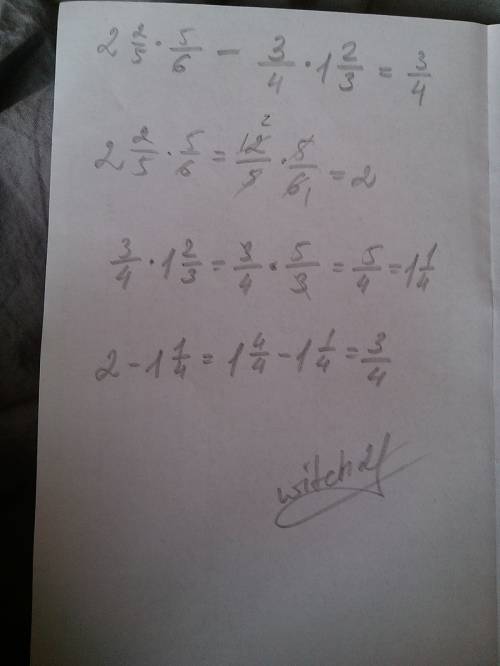 2 2/5 · 5/6 − 3/4 · 1 2/3 = 3/4
2 2/5 · 5/6 = 12/5 · 5/6 = 2
3/4 · 1 2/3 = 3/4 · 5/3 = 5/4 = 1 1/4
2 − 1 1/4 = 1 4/4 − 1 1/4 = 3/4